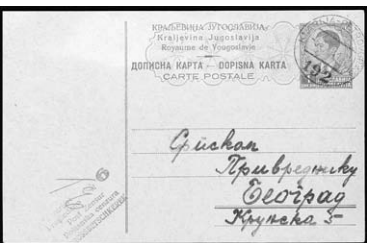 КРАЉЕВИНА ЈУГОСЛАВИЈА
Kraljevina Jugoslavija
Royaume de Yougoslavie
ДОПИСНА КАРТА — DOPISNA KARTA
CARTE POSTALE
192
6
Српском
Привреднику
Београд
Крунска 5